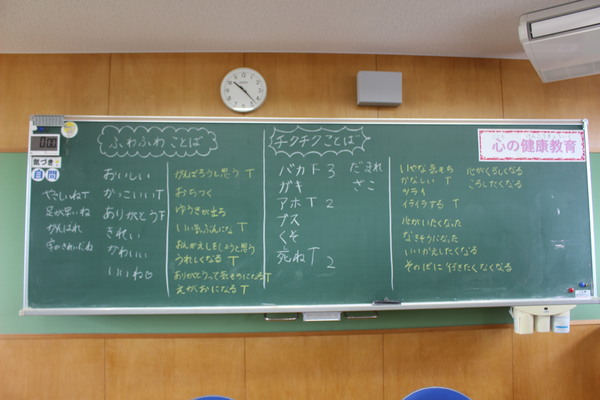 ふわふわことば
やさしいね T
足が早いね
がんばれ
字がきれいだね
おいしい
かっこいい T
ありがとう T
きれい
かわいい
いいね♡
がんばろうと思う T
おちつく
ゆうきが出る
いい気ぶんになる T
おんがえしをしようと思う
うれしくなる T
ありがとうって気もちになる T
えがおになる T
チクチクことば
バカ T 3
ガキ
アホ T 2
ブス
くそ
死ね T 2
だまれ
ざこ
いやな気もち
かなしい T
ツライ
イライラする T
心がいたくなった
なきそうになった
いいかえしたくなる
そのばに行きたくなくなる
心がくるしくなる
ころしたくなる
心の健康教育
けんこうきょういく
気づき
自問